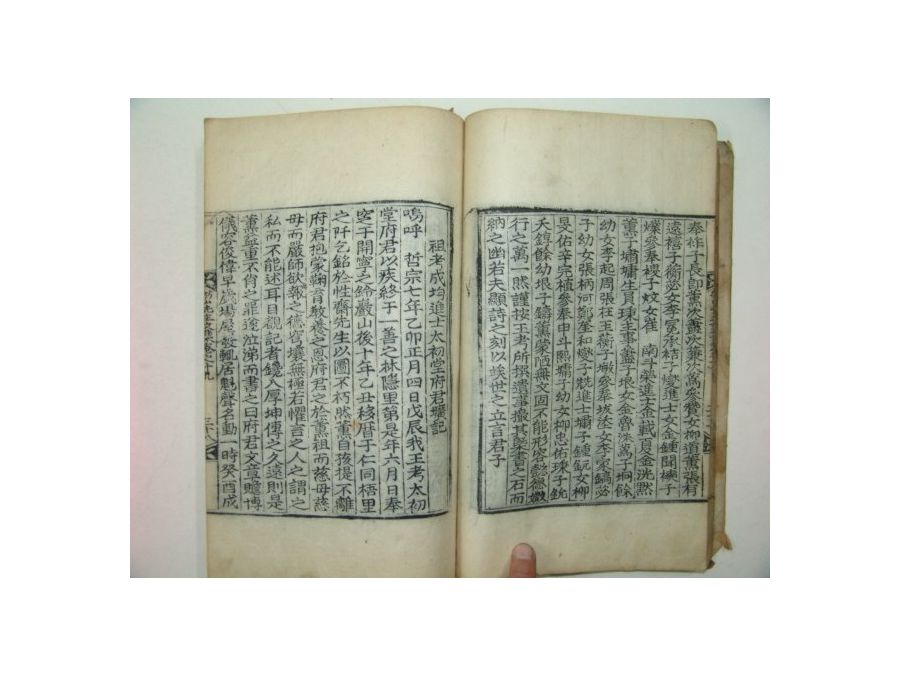 奉祚子長卽薰次肅次蒹次萬參贊女柳道薰張有
遠禧子衡毖女李冕承秸子燮進士女金鍾聞纁子
爍參奉榎子炆女崔 南士榮進士金載夏金洸默
薰子墉墉生員㻋主事藎子埌女金魯洙萬子垌餘
幼女李起周張柱王衡子墩參奉坺浤女李家鎬毖
子幼女張柄河鄭奎和燮子兢進士壩子鍾䥐女柳
旻佑辛宗植參奉申斗熙墉子幼女柳忠佑㻋子銃
夭錞餘幼埌子鑄薰蒙陋無文固不能形容懿德媺
行之萬一然謹按王考所撰遺事撮其槩書之石而
納之幽若夫顯詩之刻以俟世之立言君子
祖考成均進士太初堂府君壙記
嗚呼 哲宗七年乙卯正月四日戊辰我王考太初
堂府君以疾終于一善之林隱里第是年六月日奉
窆于開寧之鈴巖山後十年乙丑移厝于仁同梧里
之阡乞銘於性齋先生以圖不朽然薰自孩提不離
府君抱蒙鞠育敎養之恩府君之於薰祖而慈母慈
母而嚴師欲報之德穹壤無極若懼言之人之謂之
私而不能述耳目覩記者鑱入厚坤傳之久遠則是
薰益重不肖之罪遂泣涕而書之曰府君文章贍博
儀容俊偉早歲場屋敦輒居魁聲名動一時癸酉成